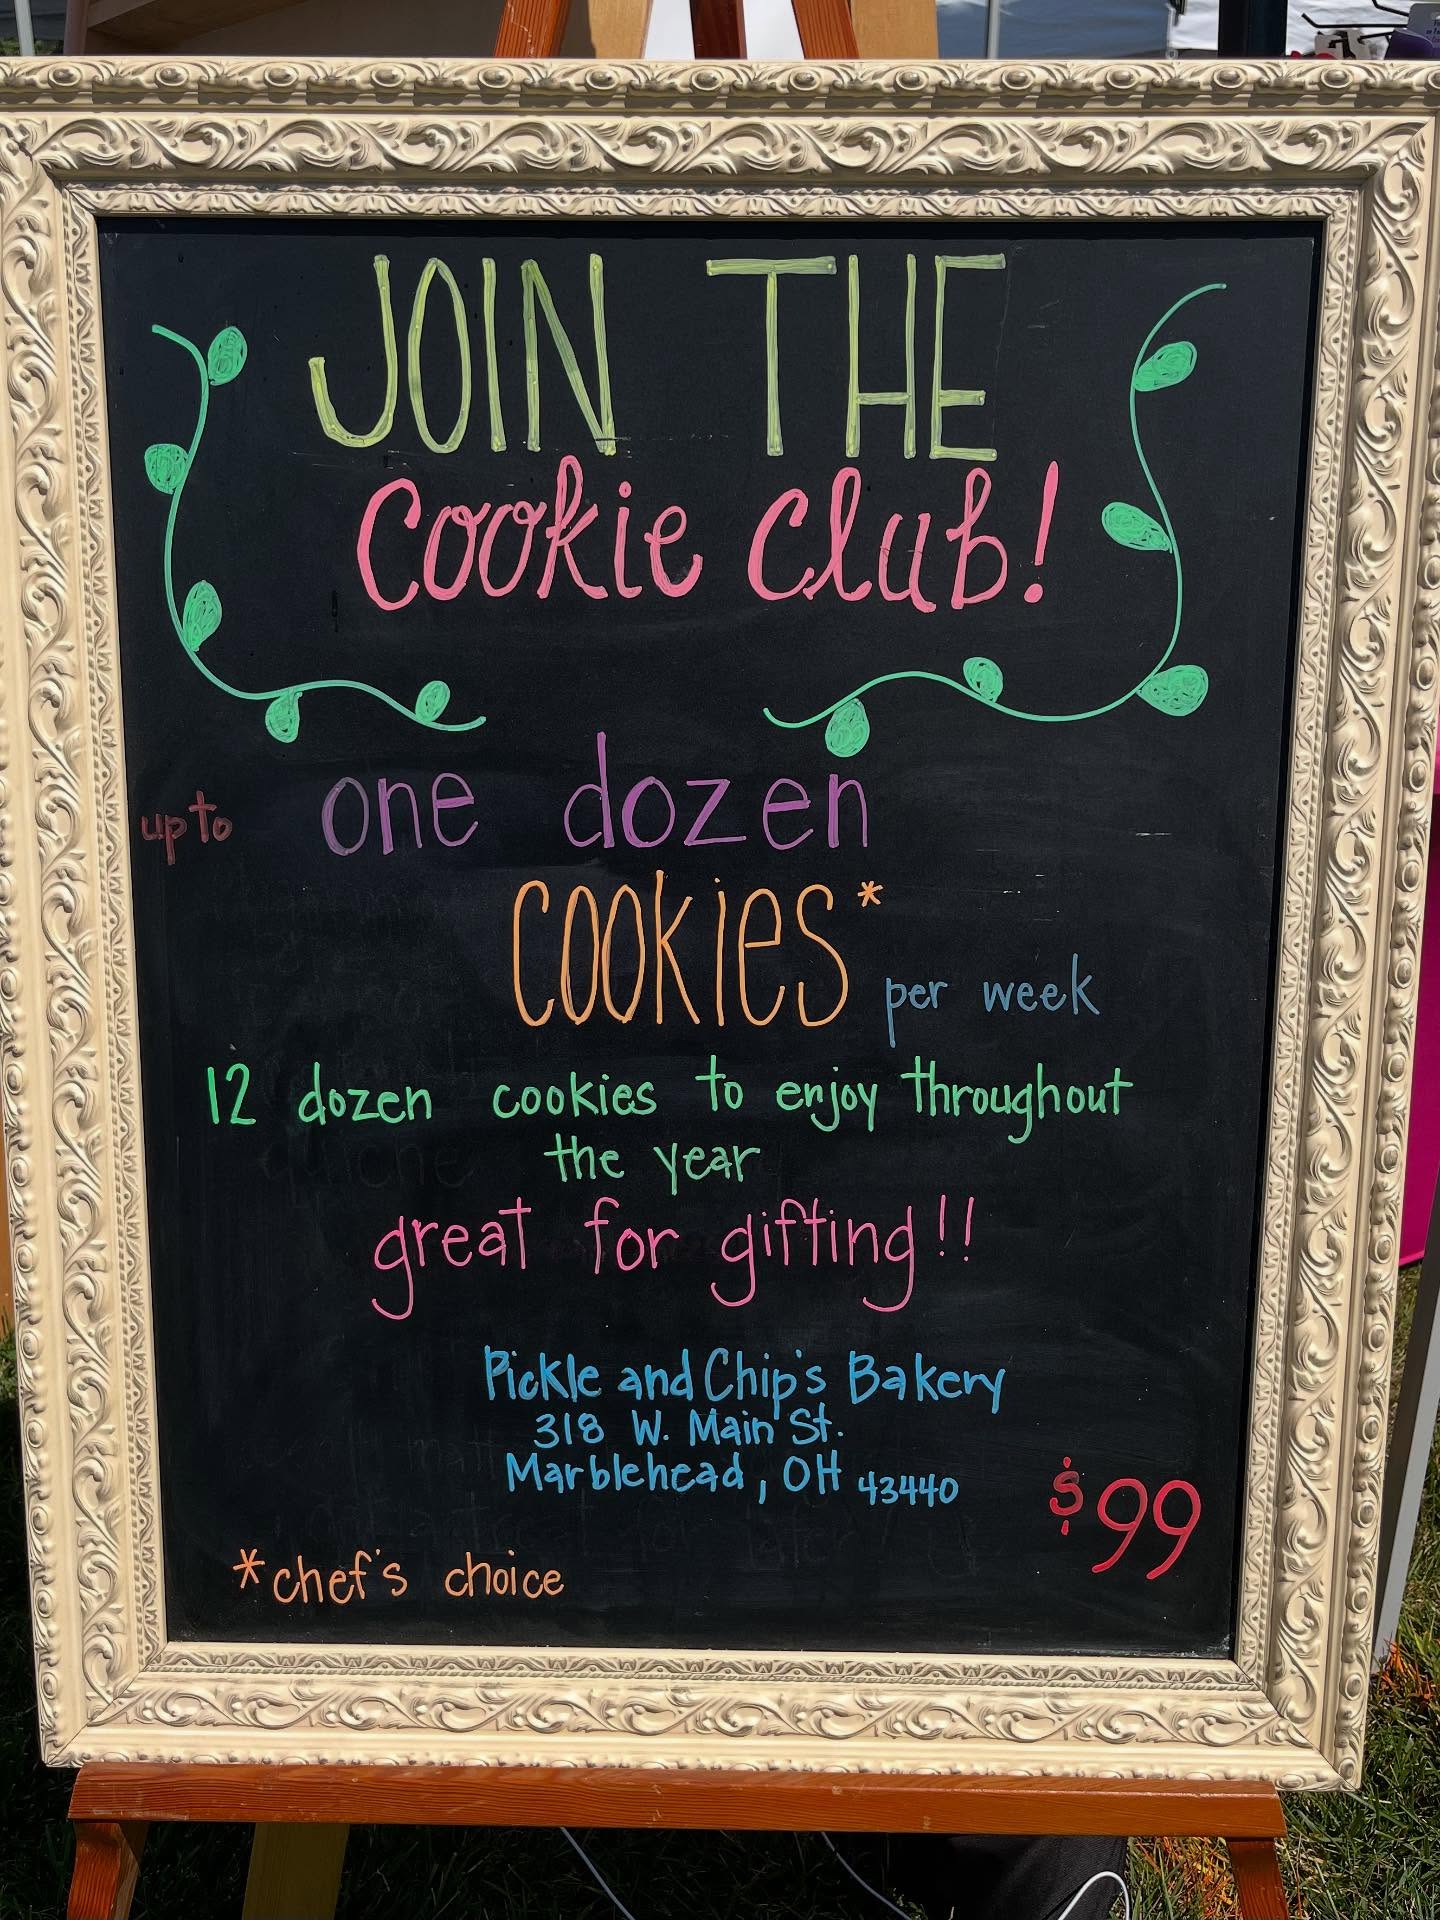 JOIN THE
Cookie Club!
up to one dozen
COOKIES* per week
12 dozen cookies to enjoy throughout
the year
great for gifting!!
Pickle and Chip's Bakery
318 W. Main St.
Marblehead, OH 43440
$99
*chef's choice